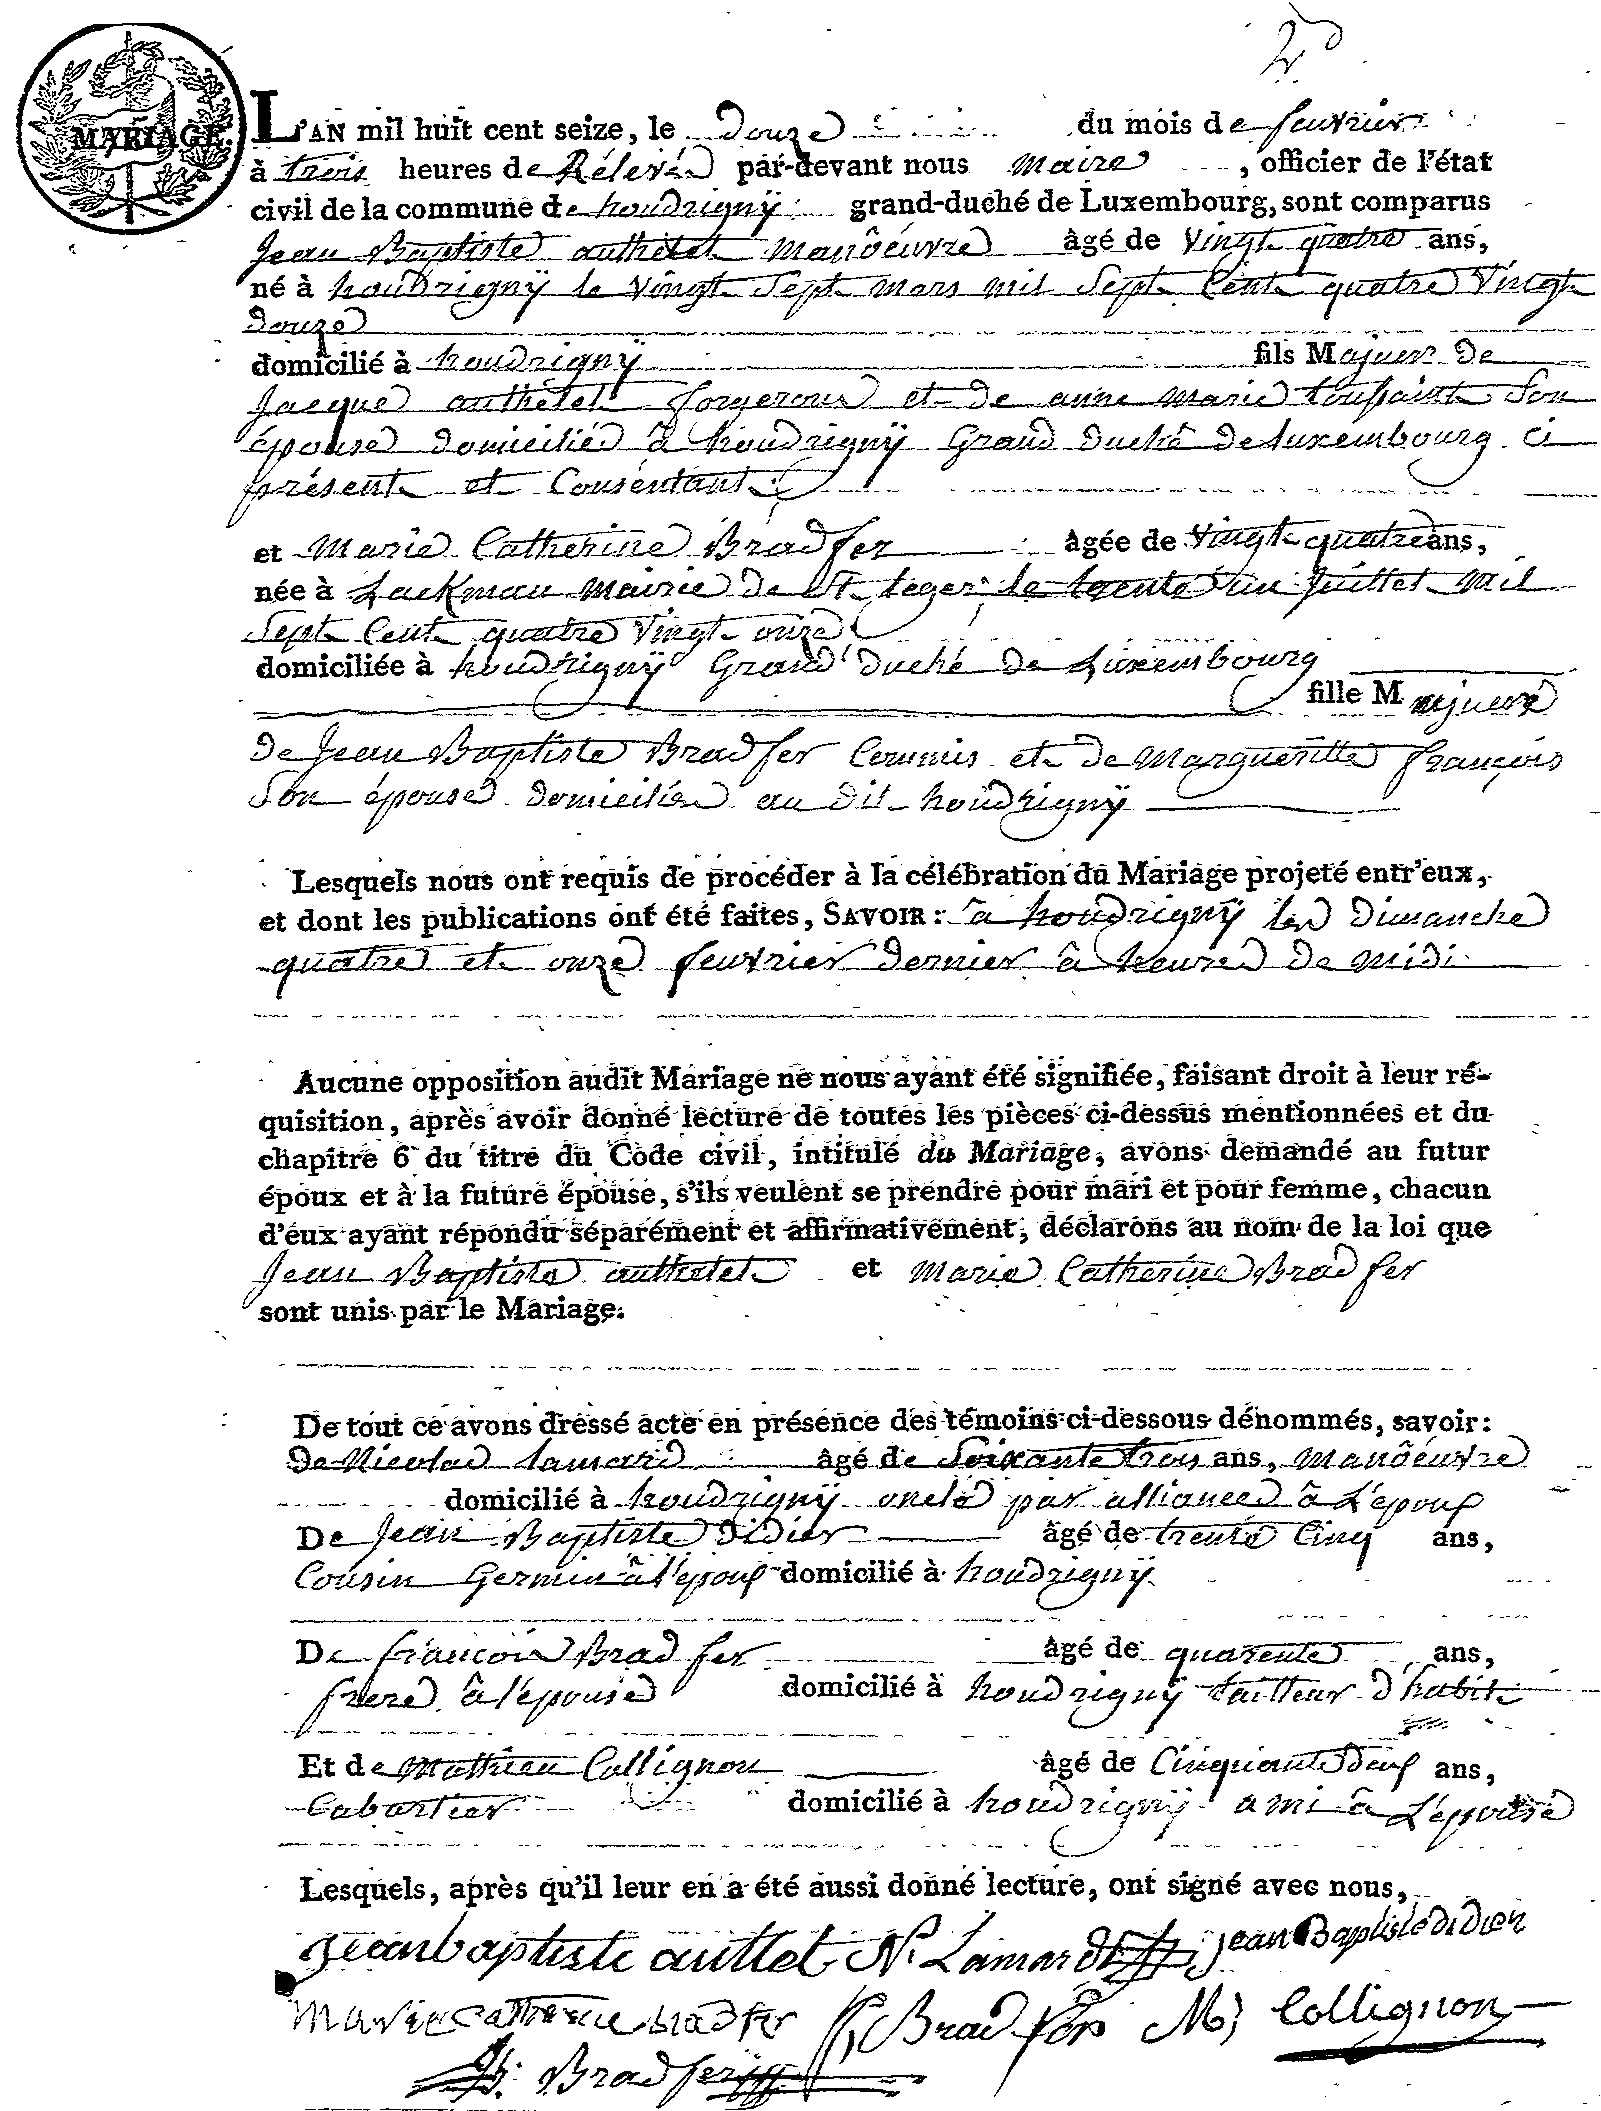 2d
MARIAGE.
L'AN mil huit cent seize, le douze du mois de feuvrier
à trois heures de Rélevéé par-devant nous maire, officier de l'état
civil de la commune de houdrignÿ grand-duché de Luxembourg, sont comparus
Jean Baptiste authélet manôeuvre âgé de vingt quatre ans,
né à houdrignÿ le vingt sept mars mil sept cent quatre vingt
douze
domicilié à houdrignÿ fils Majuer de
Jacque authélet forgeron et de anne marie toussaint son
épouse domicilié â houdrignÿ Grand duché de luxembourg ci
présent et consentant
et Marie Catherine Bradfer âgée de vingt quatre ans,
née à Lackman mairie de St leger le trente un juillet mil
sept cent quatre vingt onze
domiciliée à houdrignÿ Grand duché de Luxembourg
fille Majuere
de Jean Baptiste Bradfer Commis et de Margueritte françois
son épouse domiciliée au dit houdrignÿ
Lesquels nous ont requis de procéder à la célébration du Mariage projeté entr'eux,
et dont les publications ont été faites, SAVOIR: â houdrignÿ les dimanche
quatre et onze feuvrier dernier â heure de midi
Aucune opposition audit Mariage ne nous ayant été signifiée, faisant droit à leur ré-
quisition, après avoir donné lecture de toutes les pièces ci-dessus mentionnées et du
chapitre 6 du titre du Code civil, intitulé du Mariage, avons demandé au futur
époux et à la future épouse, s'ils veulent se prendre pour mari et pour femme, chacun
d'eux ayant répondu séparément et affirmativement, déclarons au nom de la loi que
Jean Baptiste authélet et marie Catherine Bradfer
sont unis par le Mariage.
De tout ce avons dressé acte en présence des témoins ci-dessous dénommés, savoir:
de Nicolas lamard âgé de soixante trois ans, manôeuvre
domicilié à houdrignÿ oncle par alliance â L'epoux
De Jean Baptiste Didier âgé de trente Cinq ans,
Cousin Germin â l'epoux domicilié à houdrignÿ
De francois Bradfer âgé de quarente ans,
frere â l'épouse domicilié à houdrignÿ tailleur d'habit
Et de Mathieu Collignon âgé de Cinquante deux ans,
Cabartier domicilié à houdrignÿ ami â L'épouse
Lesquels, après qu'il leur en a été aussi donné lecture, ont signé avec nous,
jeanbaptiste auttlet N. Lamard jean Baptiste didier
Marie catherine bradfer Bradfer M; Collignon
Bradfer